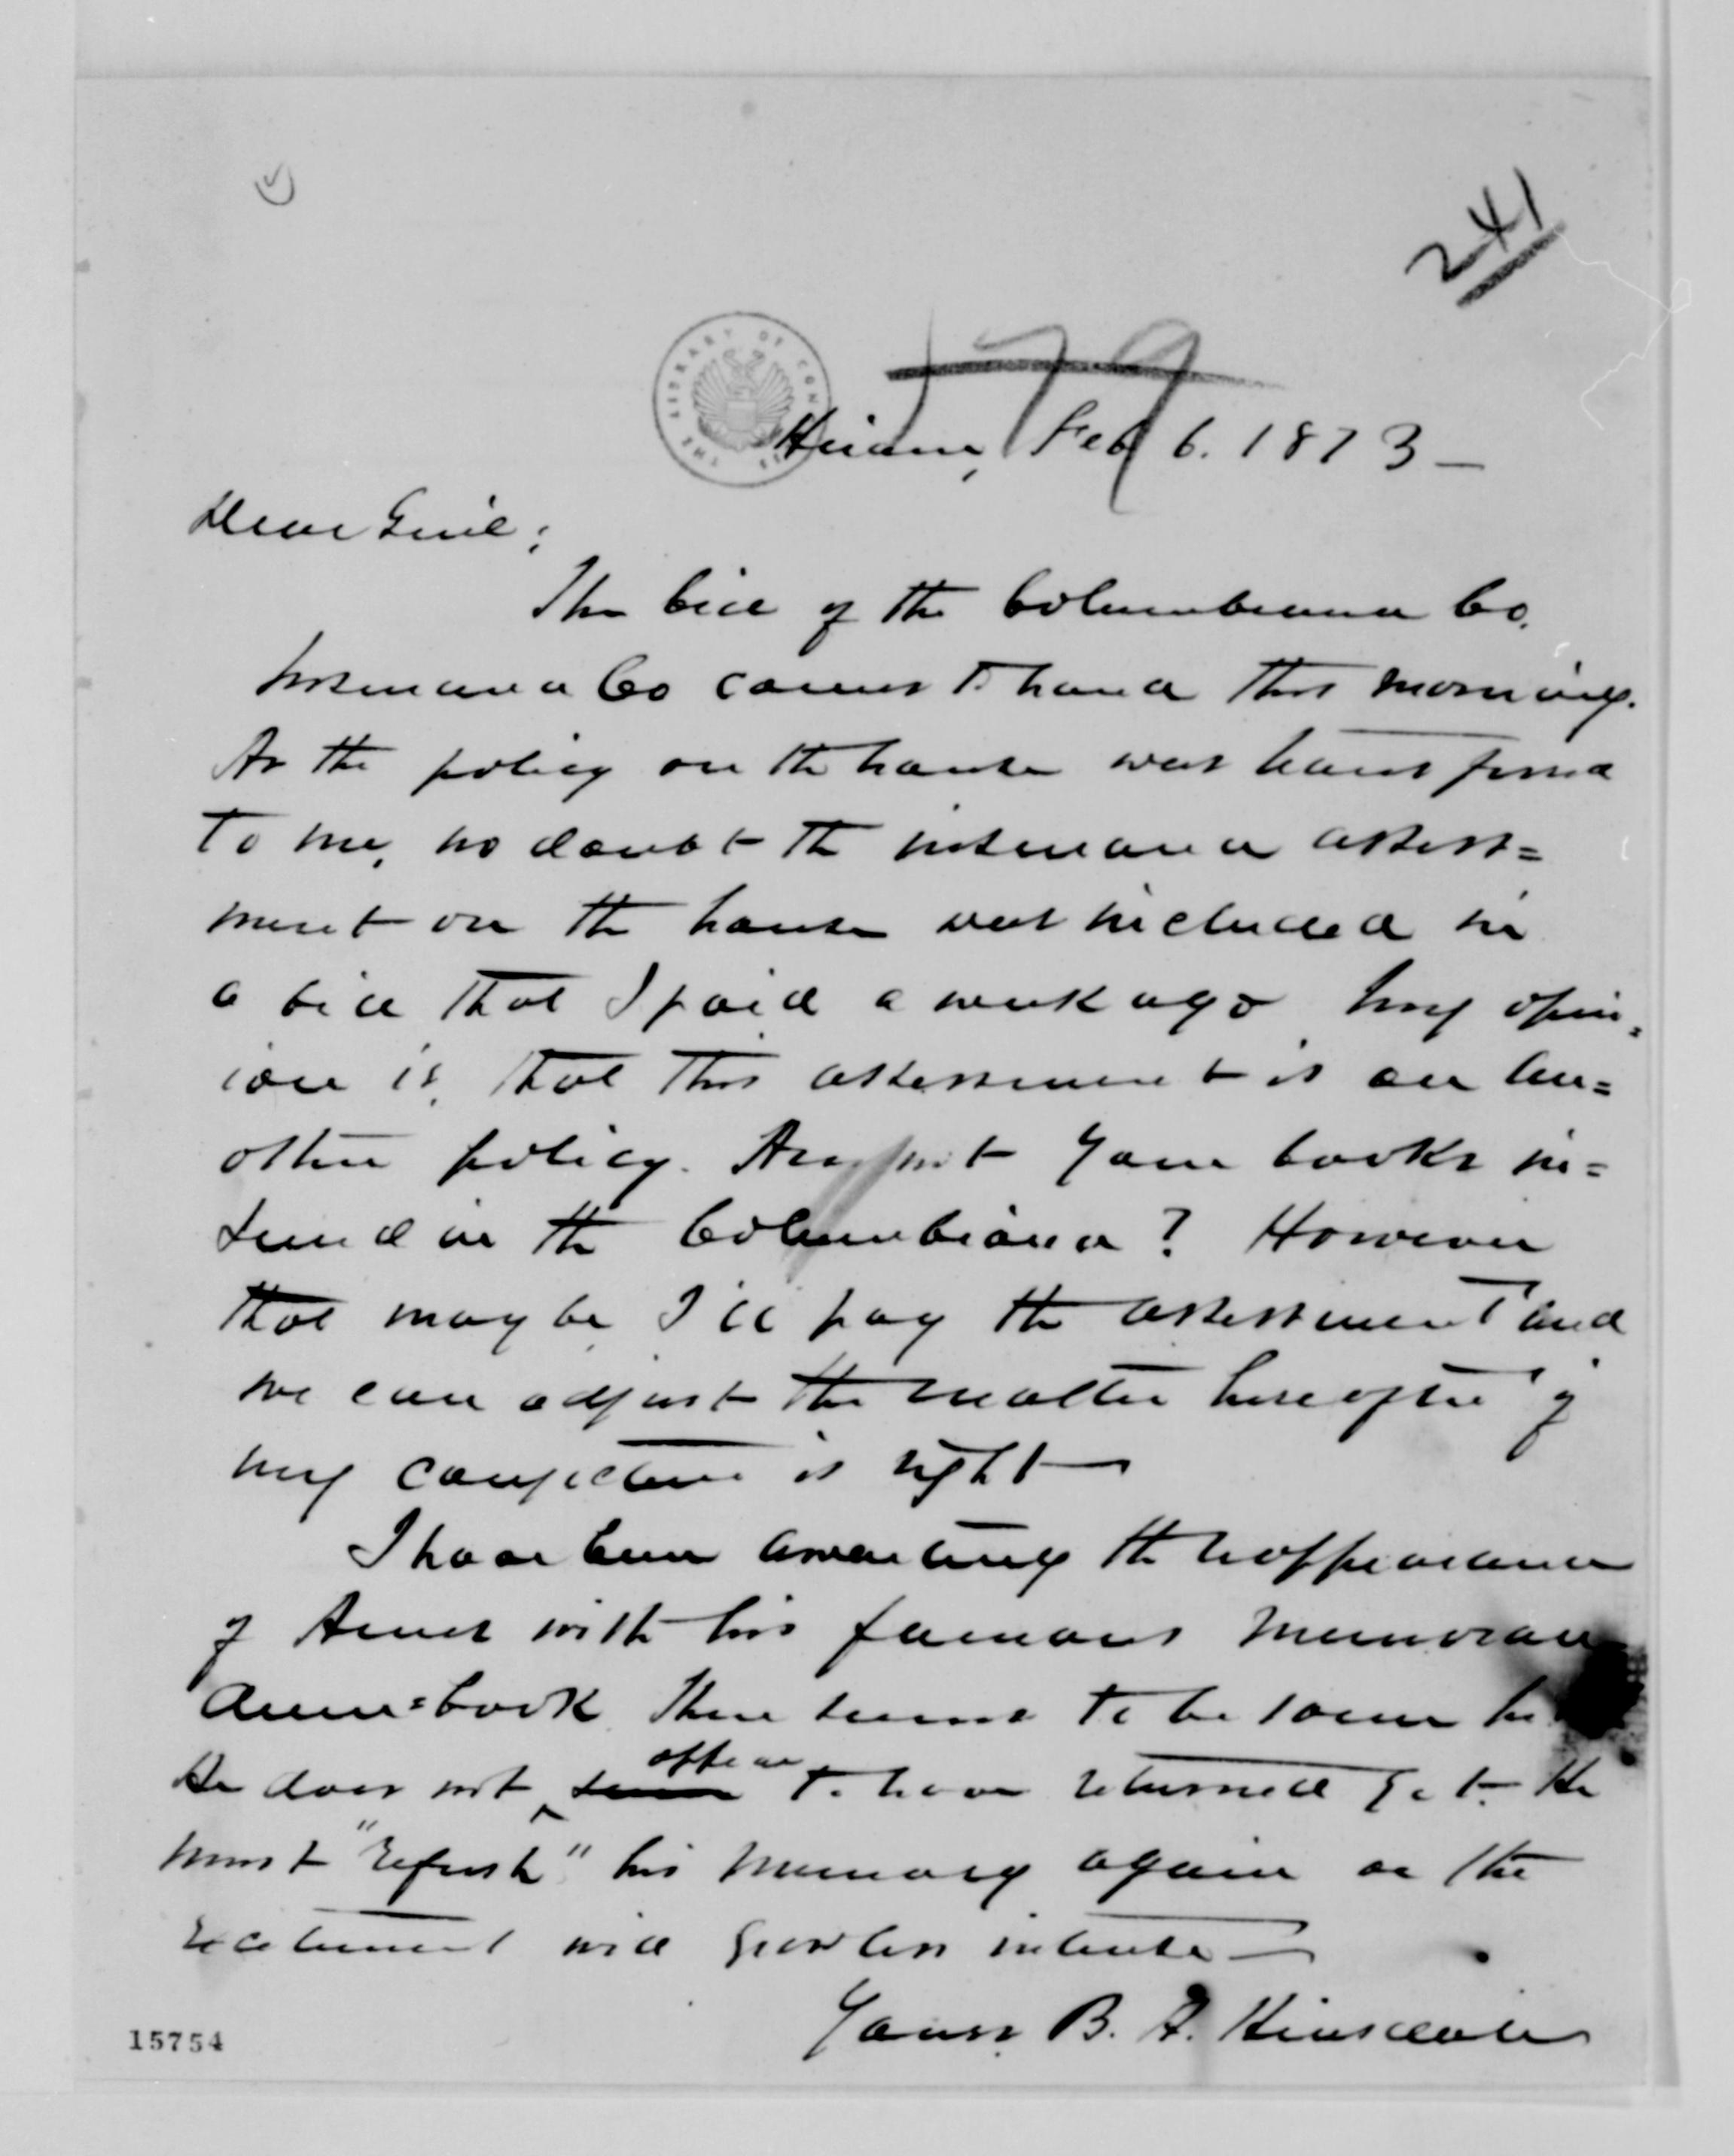 241
179
THE LIBRARY OF CONGRESS
Hiram, Feb 6. 1873 —
Dear Genl:
The bill of the Columbiana Co.
Insurance Co comes to hand this morning.
As the policy on the house was transferred
to me, no doubt the insurance assess=
ment on the house was included in
a bill that I paid a week ago. My opin=
ion is, that this assessment is on an=
other policy. Are not your books in=
sured in the Columbiana? However
that may be, I'll pay the assessment and
we can adjust the matter hereafter if
my conjecture is right —
I have been awaiting the reappearance
of Ames with his famous memoran
dum=book. There seems to be some
He does not seem appear to have returned yet. He
must "refresh" his memory again or the
excitement will grow less intense —
Yours, B. A. Hinsdale
15754